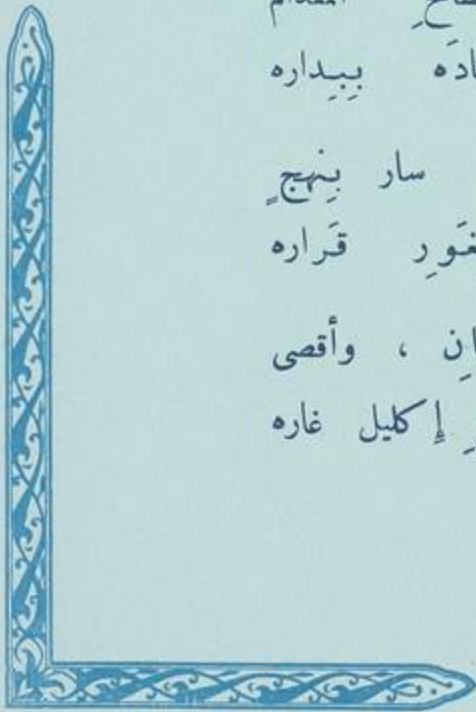 المقدام
بِبِداره
سار بِنهجٍ
قَراره
، وأقصى
إِكليل غاره